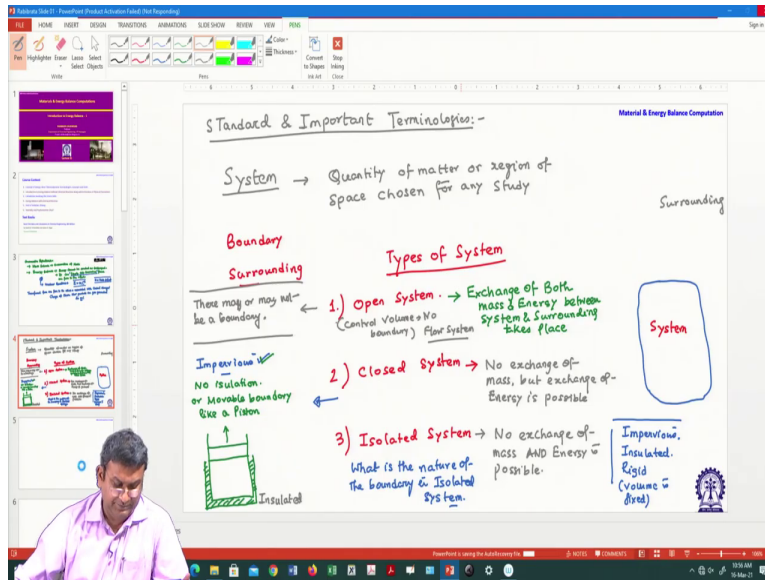 Rabibrata Slide 01 - PowerPoint (Product Activation Failed) (Not Responding)
FILE HOME INSERT DESIGN TRANSITIONS ANIMATIONS SLIDE SHOW REVIEW VIEW PENS
Sign in
Pen Highlighter Eraser Lasso Select Select Objects
Color
Thickness
Convert to Shapes
Stop Inking
Write
Pens
Ink Art
Close
Material & Energy Balance Computation
STandard & Important Terminologies:-
System → Quantity of matter or region of
space chosen for any Study
Surrounding
Boundary
Surrounding
Types of System
There may or may not-
be a boundary.
← 1.) Open System. → Exchange of Both
mass & Energy between
System & Surrounding
takes Place
(Control Volume → No
boundary) Flow System
System
Impervious ✓
No Isulation.
or Movable boundary
like a Piston
2) Closed System → No exchange of-
mass, but exchange of-
Energy is possible
3) Isolated System → No exchange of-
mass AND Energy is
possible.
What is the nature of-
the boundary in Isolated
System.
Impervious.
Insulated.
Rigid
(volume is
fixed)
Insulated
PowerPoint is saving the AutoRecovery file
NOTES
COMMENTS
100%
10:56 AM
16-Mar-21